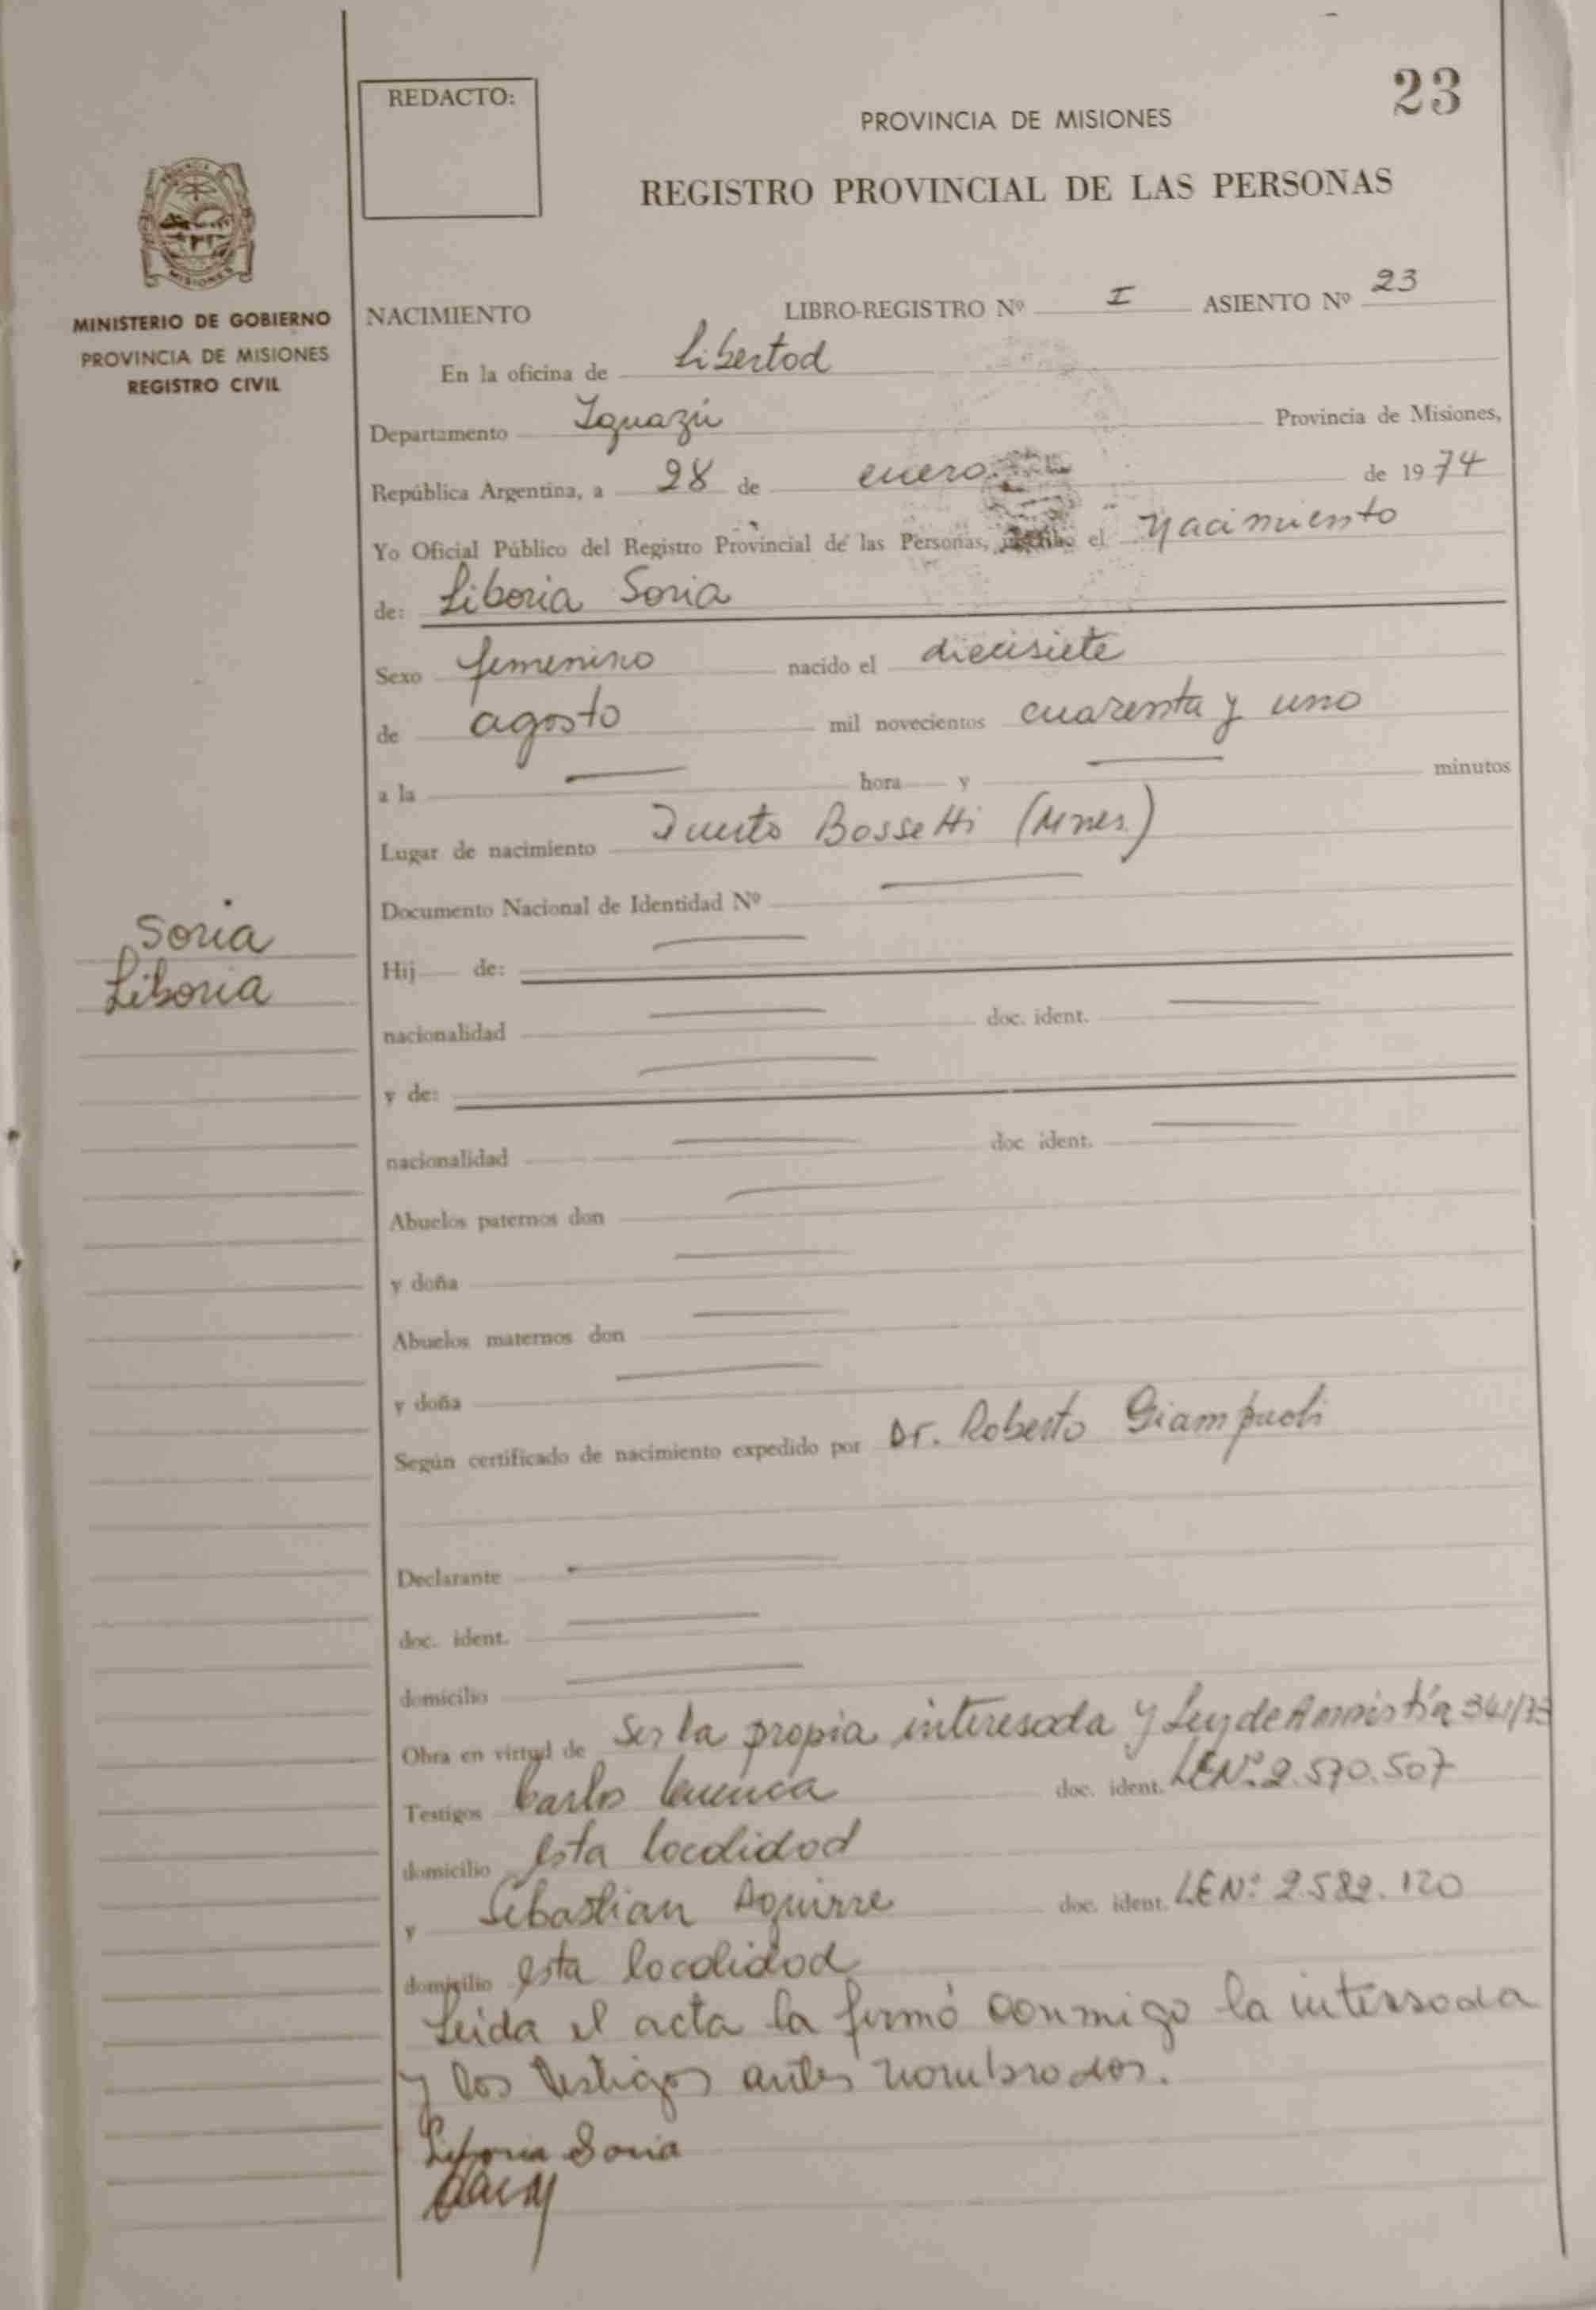 23
REDACTO:
PROVINCIA DE MISIONES
REGISTRO PROVINCIAL DE LAS PERSONAS
MISIONES
MINISTERIO DE GOBIERNO
PROVINCIA DE MISIONES
REGISTRO CIVIL
NACIMIENTO LIBRO-REGISTRO Nº I ASIENTO Nº 23
En la oficina de Libertad
Departamento Iguazú Provincia de Misiones,
República Argentina, a 28 de enero de 1974
Yo Oficial Público del Registro Provincial de las Personas, inscribo el Nacimiento
de: Liboria Soria
Sexo femenino nacido el diecisiete
de agosto mil novecientos cuarenta y uno
a la — hora y — minutos
Lugar de nacimiento Puerto Bossetti (Mnes.)
Documento Nacional de Identidad Nº —
Soria
Liboria
Hij de: —
nacionalidad — doc. ident. —
y de: —
nacionalidad — doc ident. —
Abuelos paternos don —
y doña —
Abuelos maternos don —
y doña —
Según certificado de nacimiento expedido por Dr. Roberto Giampaoli
Declarante —
doc. ident. —
domicilio —
Obra en virtud de Ser la propia interesada y Ley de Amnistía 341/73
Testigos Carlos doc. ident. LENº 2.570.507
domicilio esta localidad
y Sebastian Aguirre doc. ident. LENº 2.582.120
domicilio esta localidad
Leida el acta la firmó conmigo la interesada
y los testigos antes nombrados.
Liboria Soria